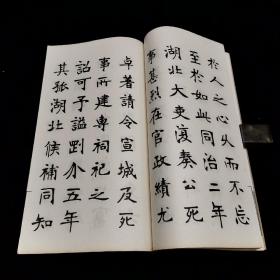 於人之心久而不忘
至於如此同治二年
湖北大吏復奏公死
事甚烈在官政績尤
卓著請令宣城及死
事所建專祠祀之
詔可予謚剛介五年
其孤湖北候補同知